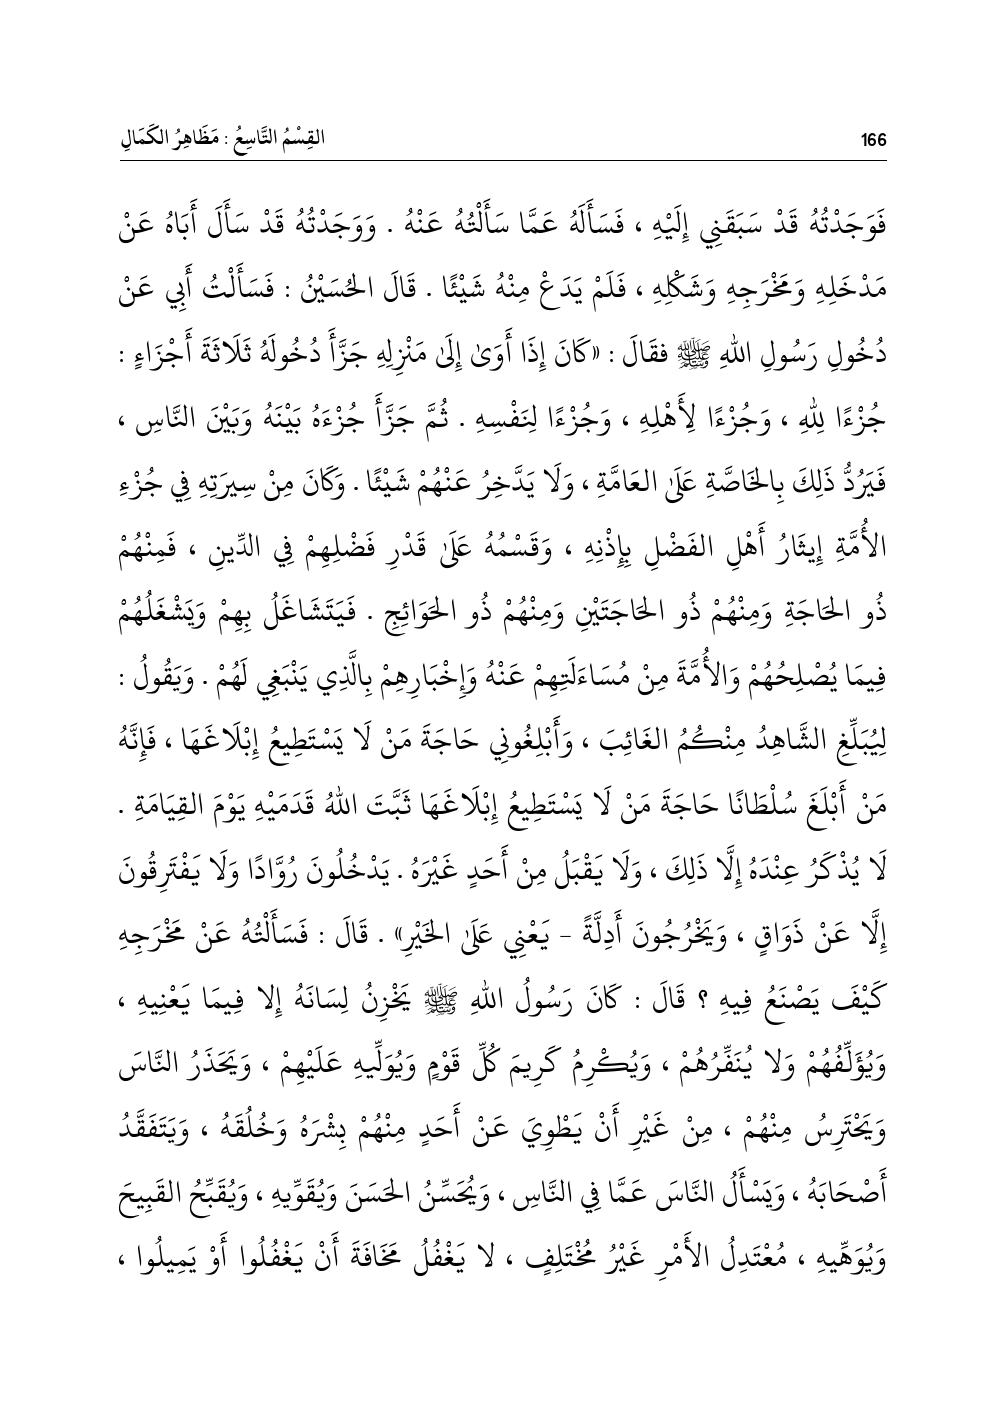 166 القِسْمُ التَّاسِعُ : مَظَاهِرُ الكَمَالِ
فَوَجَدْتُهُ قَدْ سَبَقَنِي إِلَيْهِ ، فَسَأَلَهُ عَمَّا سَأَلْتُهُ عَنْهُ . وَوَجَدْتُهُ قَدْ سَأَلَ أَبَاهُ عَنْ
مَدْخَلِهِ وَمَخْرَجِهِ وَشَكْلِهِ ، فَلَمْ يَدَعْ مِنْهُ شَيْئًا . قَالَ الحُسَيْنُ : فَسَأَلْتُ أَبِي عَنْ
دُخُولِ رَسُولِ اللهِ ﷺ فقَالَ : «كَانَ إِذَا أَوَىٰ إِلَىٰ مَنْزِلِهِ جَزَّأَ دُخُولَهُ ثَلَاثَةَ أَجْزَاءٍ :
جُزْءًا لِلهِ ، وَجُزْءًا لِأَهْلِهِ ، وَجُزْءًا لِنَفْسِهِ . ثُمَّ جَزَّأَ جُزْءَهُ بَيْنَهُ وَبَيْنَ النَّاسِ ،
فَيَرُدُّ ذَلِكَ بِالخَاصَّةِ عَلَىٰ العَامَّةِ ، وَلَا يَدَّخِرُ عَنْهُمْ شَيْئًا . وَكَانَ مِنْ سِيرَتِهِ فِي جُزْءِ
الأُمَّةِ إِيثَارُ أَهْلِ الفَضْلِ بِإِذْنِهِ ، وَقَسْمُهُ عَلَىٰ قَدْرِ فَضْلِهِمْ فِي الدِّينِ ، فَمِنْهُمْ
ذُو الحَاجَةِ وَمِنْهُمْ ذُو الحَاجَتَيْنِ وَمِنْهُمْ ذُو الحَوَائِجِ . فَيَتَشَاغَلُ بِهِمْ وَيَشْغَلُهُمْ
فِيمَا يُصْلِحُهُمْ وَالأُمَّةَ مِنْ مُسَاءَلَتِهِمْ عَنْهُ وَإِخْبَارِهِمْ بِالَّذِي يَنْبَغِي لَهُمْ . وَيَقُولُ :
لِيُبَلِّغِ الشَّاهِدُ مِنْكُمُ الغَائِبَ ، وَأَبْلِغُونِي حَاجَةَ مَنْ لَا يَسْتَطِيعُ إِبْلَاغَهَا ، فَإِنَّهُ
مَنْ أَبْلَغَ سُلْطَانًا حَاجَةَ مَنْ لَا يَسْتَطِيعُ إِبْلَاغَهَا ثَبَّتَ اللهُ قَدَمَيْهِ يَوْمَ القِيَامَةِ .
لَا يُذْكَرُ عِنْدَهُ إِلَّا ذَلِكَ ، وَلَا يَقْبَلُ مِنْ أَحَدٍ غَيْرَهُ . يَدْخُلُونَ رُوَّادًا وَلَا يَفْتَرِقُونَ
إِلَّا عَنْ ذَوَاقٍ ، وَيَخْرُجُونَ أَدِلَّةً - يَعْنِي عَلَىٰ الخَيْرِ» . قَالَ : فَسَأَلْتُهُ عَنْ مَخْرَجِهِ
كَيْفَ يَصْنَعُ فِيهِ ؟ قَالَ : كَانَ رَسُولُ اللهِ ﷺ يَخْزِنُ لِسَانَهُ إِلا فِيمَا يَعْنِيهِ ،
وَيُؤَلِّفُهُمْ وَلا يُنَفِّرُهُمْ ، وَيُكْرِمُ كَرِيمَ كُلِّ قَوْمٍ وَيُوَلِّيهِ عَلَيْهِمْ ، وَيَحَذَرُ النَّاسَ
وَيَحْتَرِسُ مِنْهُمْ ، مِنْ غَيْرِ أَنْ يَطْوِيَ عَنْ أَحَدٍ مِنْهُمْ بِشْرَهُ وَخُلُقَهُ ، وَيَتَفَقَّدُ
أَصْحَابَهُ ، وَيَسْأَلُ النَّاسَ عَمَّا فِي النَّاسِ ، وَيُحَسِّنُ الحَسَنَ وَيُقَوِّيهِ ، وَيُقَبِّحُ القَبِيحَ
وَيُوَهِّيهِ ، مُعْتَدِلُ الأَمْرِ غَيْرُ مُخْتَلِفٍ ، لا يَغْفُلُ مَخَافَةَ أَنْ يَغْفُلُوا أَوْ يَمِيلُوا ،